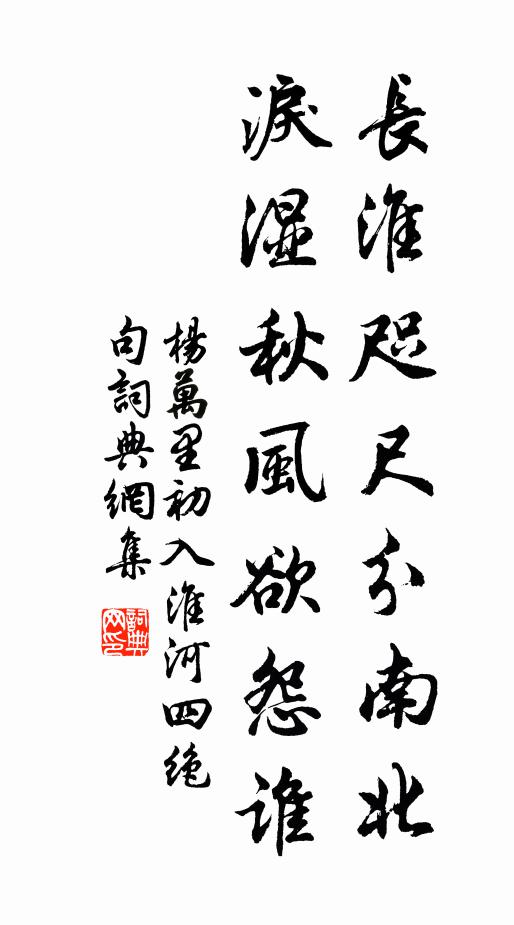 長淮咫尺分南北
淚濕秋風欲怨誰
楊萬里初入淮河四絶
句詞典網集
詞典
网印